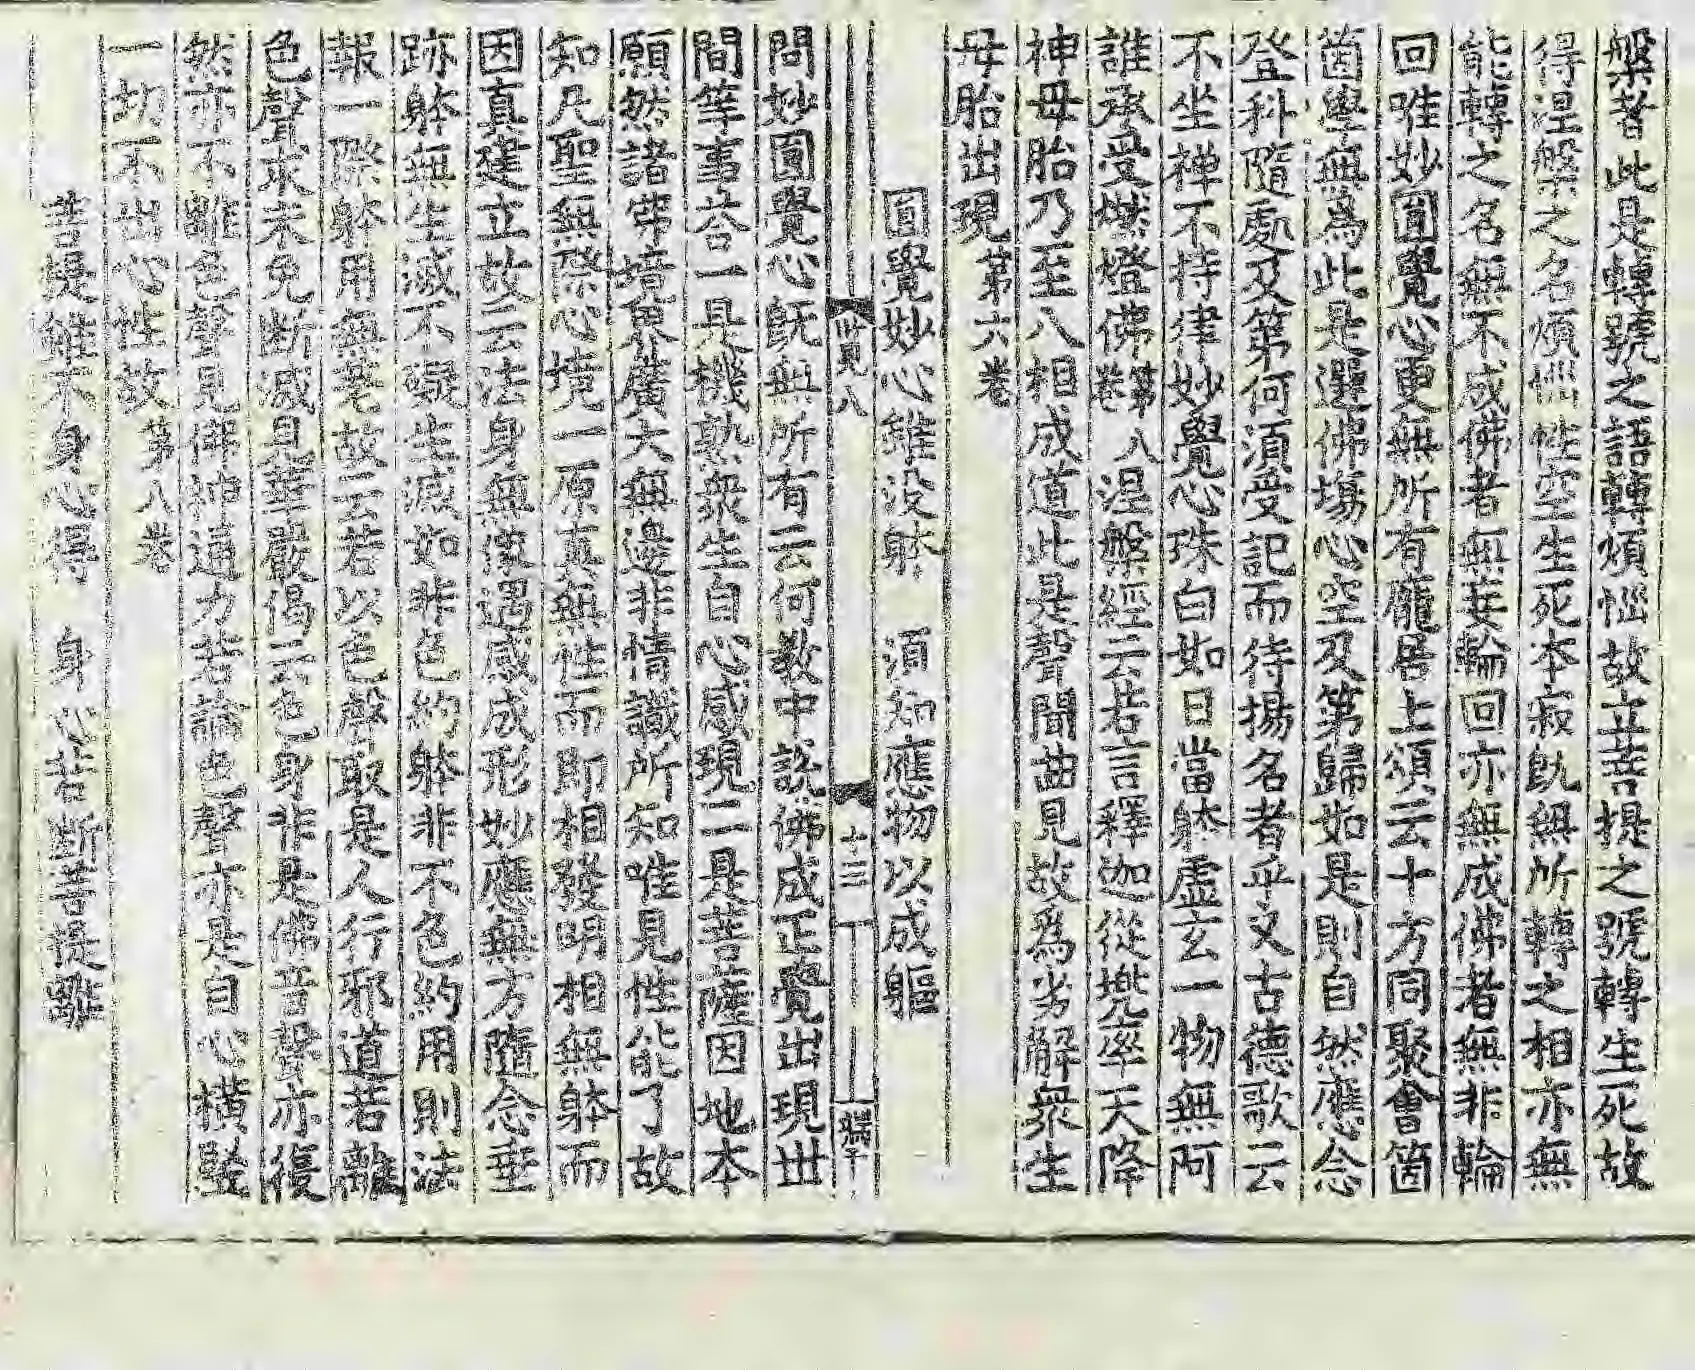 槃者此是轉號之語轉煩惱故立菩提之號轉生死故
得涅槃之名煩惱性空生死本寂旣無所轉之相亦無
能轉之名無不成佛者無妄輪回亦無成佛者無非輪
回唯妙圎覺心更無所有龐居士頌云十方同聚會箇
箇學無爲此是選佛塲心空及第歸如是則自然應念
登科隨處及第何須受記而待揚名者乎又古德歌云
不坐禅不持律妙覺心珠白如日當躰虛玄一物無阿
誰承受燃燈佛第八卷 涅槃經云若言釋迦從兠率天降
神母胎乃至八相成道此是聲聞曲見故爲劣解衆生
母胎出現第六卷
圎覺妙心雖没躰 須知應物以成軀
賛八 十三
問妙圎覺心旣無所有云何教中說佛成正覺出現世
間等事荅一具機熟衆生自心感現二是菩薩因地本
願然諸佛境界廣大無邊非情識所知唯見性能了故
知凡聖無際心境一原真無性而即相發明相無躰而
因真建立故云法身無像遇感成形妙應無方隨念垂
跡躰無生滅不礙生滅如非色約躰非不色約用則法
報一際躰用無差故云若以色聲取是人行邪道若離
色聲求未免断滅見華嚴偈云色身非是佛音聲亦復
然亦不離色聲見佛神通力若論色聲亦是自心橫竪
一切不出心性故第八卷
菩提雖不身心得 身心若断菩提難